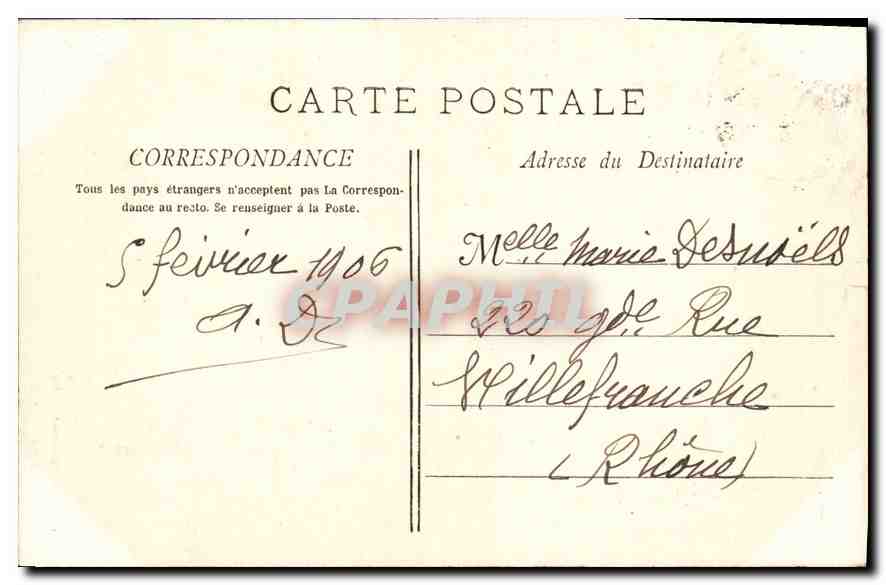 CARTE POSTALE
CORRESPONDANCE
Tous les pays étrangers n'acceptent pas La Correspon-
dance au recto. Se renseigner à la Poste.
5 février 1906
a. D
Adresse du Destinataire
Melle Marie Desnoëls
220 gde Rue
Villefranche
(Rhône)
CPAPHIL